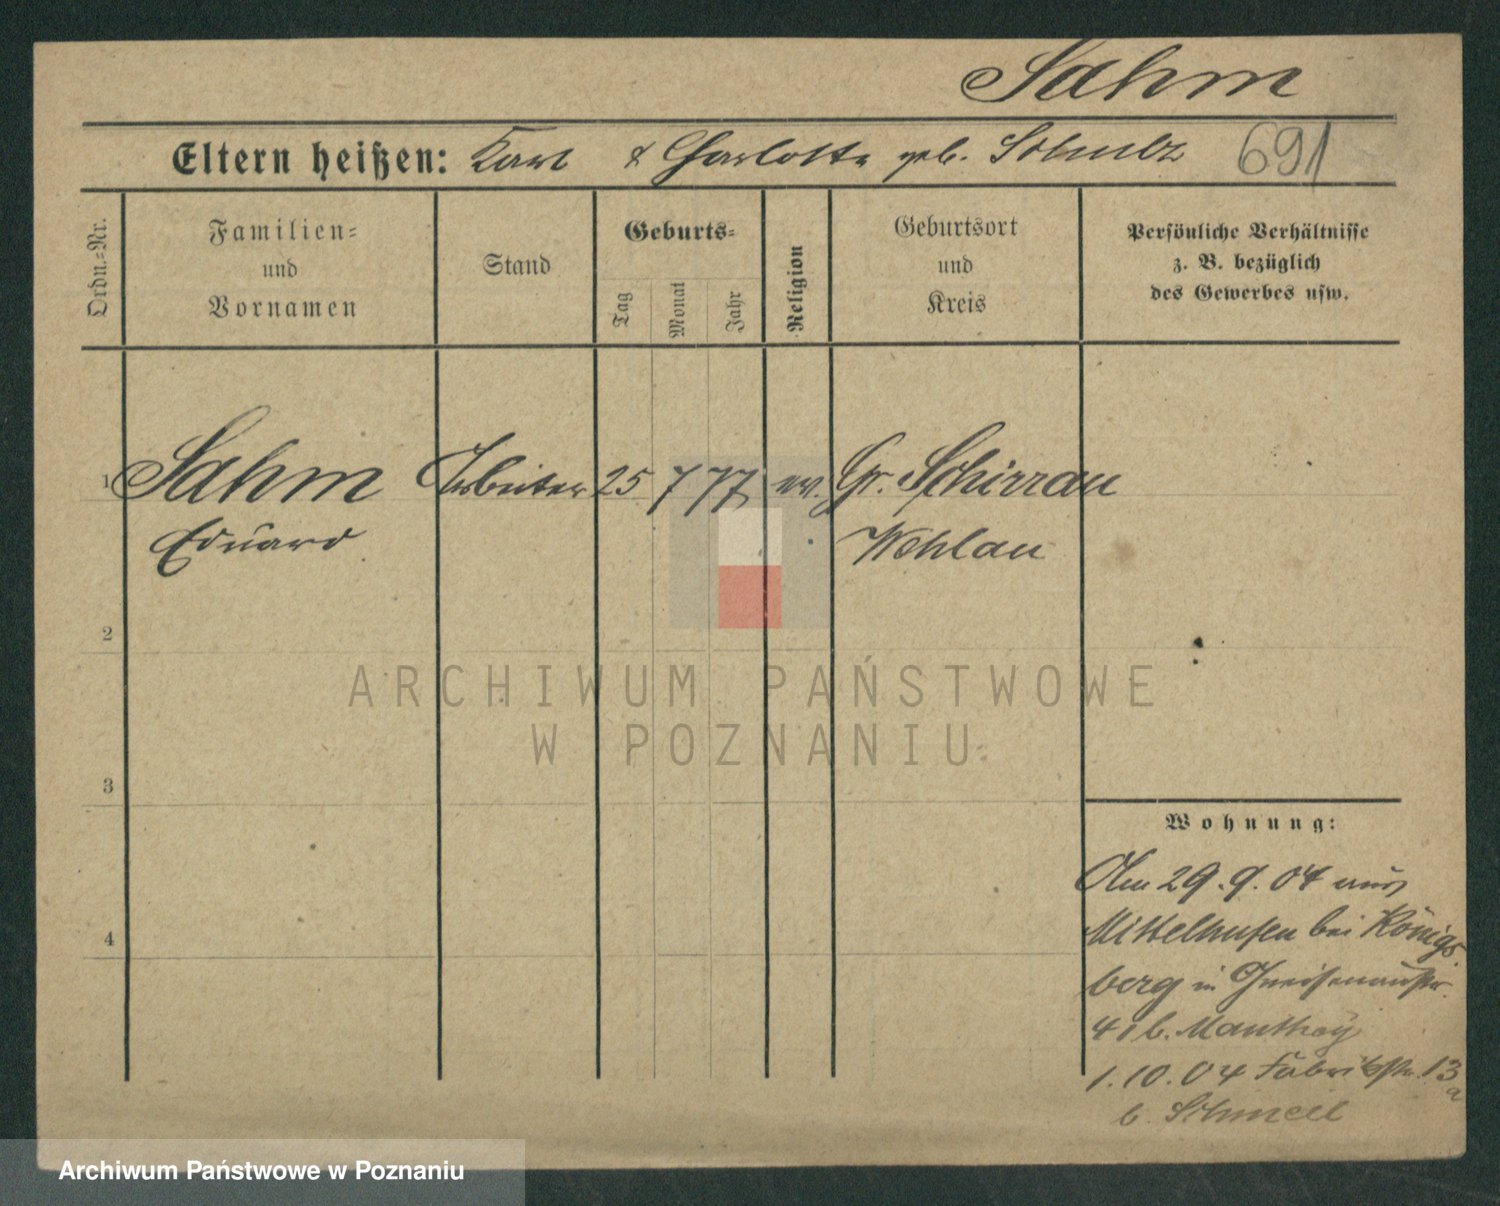 Sahm
Eltern heißen: Karl & Charlotte geb. Schulz 691
Ordn.-Nr.
Familien-
und
Vornamen
Stand
Geburts-
Tag
Monat
Jahr
Religion
Geburtsort
und
Kreis
Persönliche Verhältnisse
z. B. bezüglich
des Gewerbes usw.
1 Sahm Arbeiter 25 7 77 ev. Gr. Schirrau
Eduard Wehlau
2
ARCHIWUM PAŃSTWOWE
W POZNANIU
3
Wohnung:
Am 29.9.04 aus
Mittelhufen bei Königs-
berg in Gneisenaustr.
41 b. Manthey
1.10.04 Fabrikstr. 13a
b. Schmeil
4
Archiwum Państwowe w Poznaniu